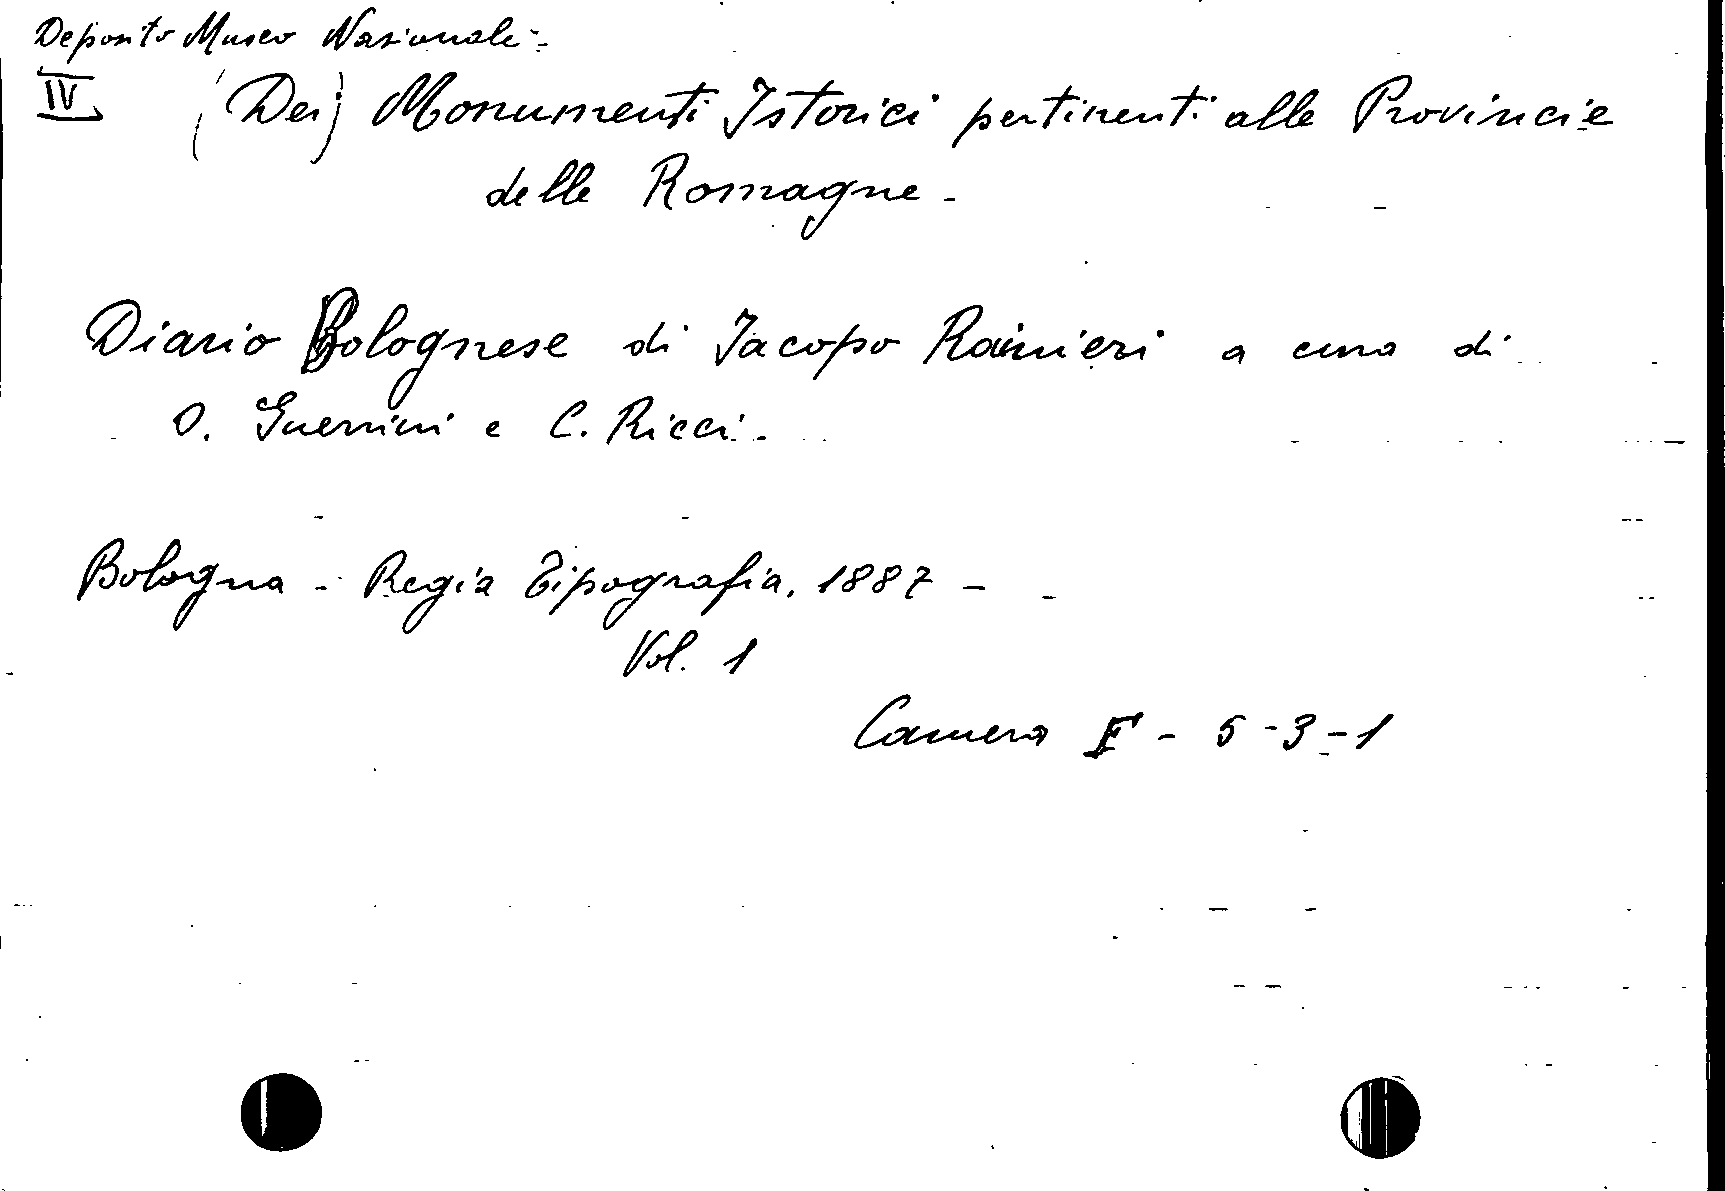 Deposito Museo Nazionale -
IV (Dei) Monumenti Istorici pertinenti alle Provincie
delle Romagne -
Diario Bolognese di Jacopo Rainieri a cura di
O. Guerrini e C. Ricci.
Bologna - Regia Tipografia, 1887 -
Vol. 1
Camera F - 5 - 3 - 1